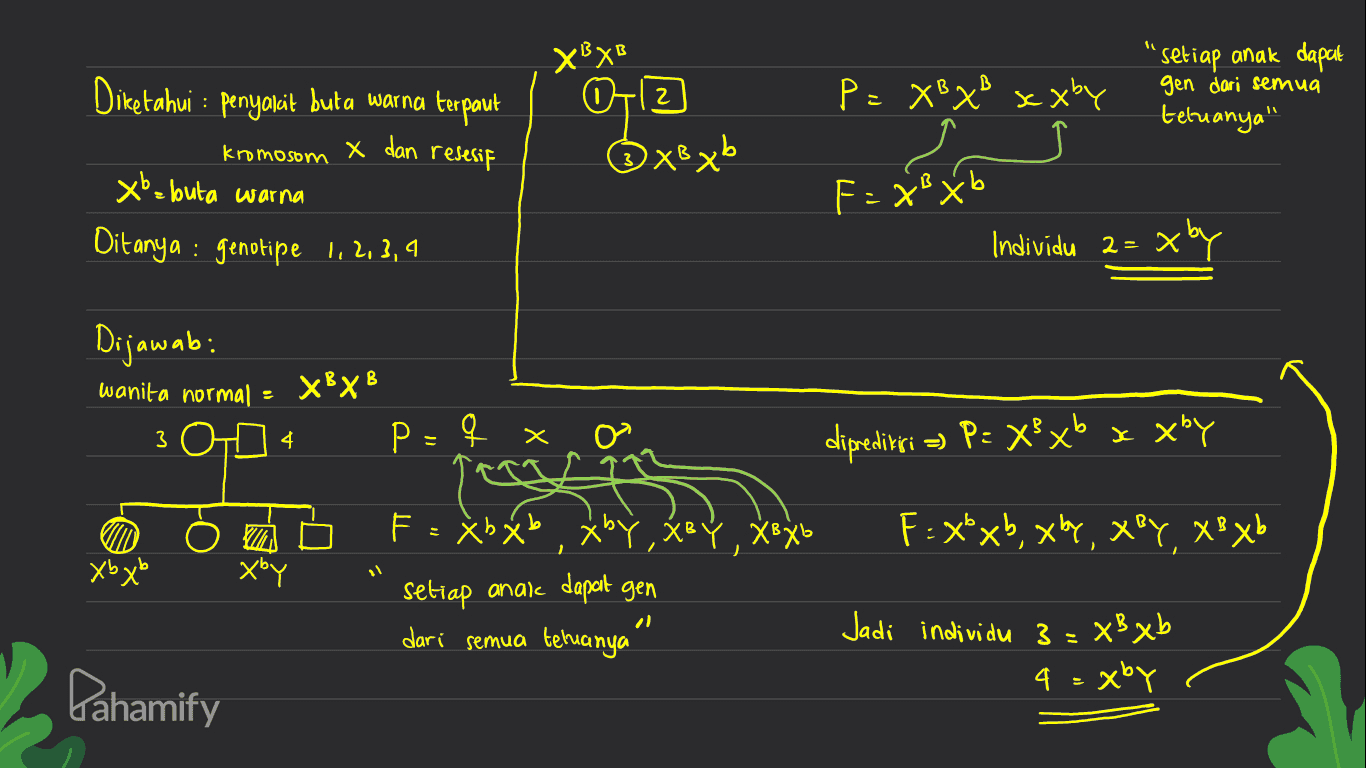 Diketahui : penyakit buta warna terpaut
kromosom X dan resesif
Xᵇ = buta warna
Ditanya : genotipe 1, 2, 3, 4
XᴮXᴮ
1 2
3 XᴮXᵇ
P = XᴮXᴮ x XᵇY
F = XᴮXᵇ
"setiap anak dapat
gen dari semua
tetuanya"
Individu 2 = XᵇY
Dijawab :
wanita normal = XᴮXᴮ
3 4
XᵇXᵇ XᵇY
P = ♀ x ♂
F = XᵇXᵇ, XᵇY, XᴮY, XᴮXᵇ
"setiap anak dapat gen
dari semua tetuanya"
diprediksi => P = XᴮXᵇ x XᵇY
F = XᵇXᵇ, XᵇY, XᴮY, XᴮXᵇ
Jadi individu 3 = XᴮXᵇ
4 = XᵇY
Pahamify